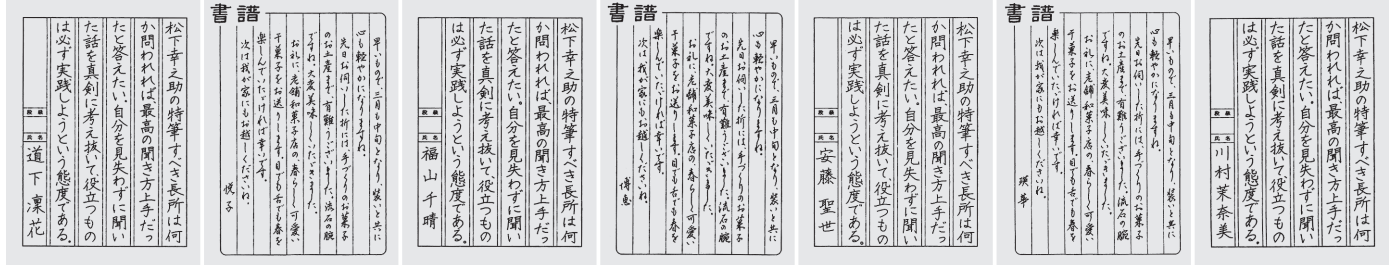 松下幸之助の特筆すべき長所は何
か問われれば、最高の聞き方上手だっ
たと答えたい。自分を見失わずに聞い
た話を真剣に考え抜いて、役立つもの
は必ず実践しようという態度である。
段級
氏名
道下凜花
書譜
早いもので、三月も中旬となり、装いと共に
心も軽やかになりますね。
先日お伺いした折には、手づくりのお菓子
のお土産まで有難うございました。流石の腕
ですね。大変美味しくいただきました。
お礼に老舗和菓子店の春らしく可愛い
干菓子をお送りします。目でも舌でも春を
楽しんでいただければ幸いです。
次は我が家にもお越しくださいね。
悦子
松下幸之助の特筆すべき長所は何
か問われれば、最高の聞き方上手だっ
たと答えたい。自分を見失わずに聞い
た話を真剣に考え抜いて、役立つもの
は必ず実践しようという態度である。
段級
氏名
福山千晴
書譜
早いもので、三月も中旬となり、装いと共に
心も軽やかになりますね。
先日お伺いした折には、手づくりのお菓子
のお土産まで有難うございました。流石の腕
ですね。大変美味しくいただきました。
お礼に老舗和菓子店の春らしく可愛い
干菓子をお送りします。目でも舌でも春を
楽しんでいただければ幸いです。
次は我が家にもお越しくださいね。
博恵
松下幸之助の特筆すべき長所は何
か問われれば、最高の聞き方上手だっ
たと答えたい。自分を見失わずに聞い
た話を真剣に考え抜いて、役立つもの
は必ず実践しようという態度である。
段級
氏名
安藤聖世
書譜
早いもので、三月も中旬となり、装いと共に
心も軽やかになりますね。
先日お伺いした折には、手づくりのお菓子
のお土産まで有難うございました。流石の腕
ですね。大変美味しくいただきました。
お礼に老舗和菓子店の春らしく可愛い
干菓子をお送りします。目でも舌でも春を
楽しんでいただければ幸いです。
次は我が家にもお越しくださいね。
瑛華
松下幸之助の特筆すべき長所は何
か問われれば、最高の聞き方上手だっ
たと答えたい。自分を見失わずに聞い
た話を真剣に考え抜いて、役立つもの
は必ず実践しようという態度である。
段級
氏名
川村茉奈美